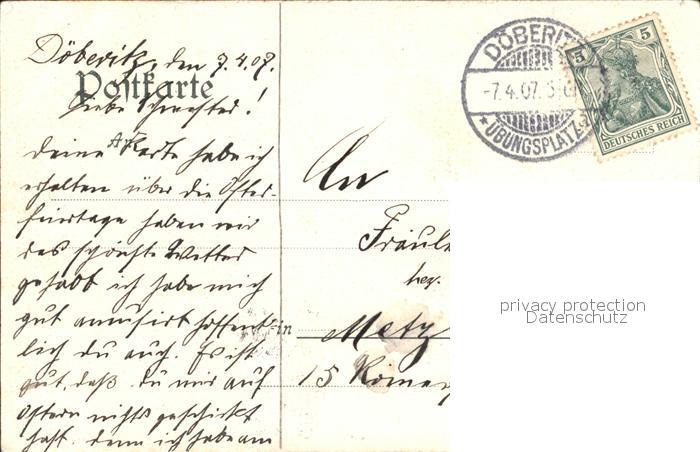 Döberitz, den 7.4.07.
Postkarte
Liebe Schwester!
An
deine Karte habe ich
erhalten über die Oster-
feiertage haben wir
das schönste Wetter
gehabt ich habe mich
gut amusirt hoffent-
lich du auch. Es ist
gut, daß du mir auf
Ostern nichts geschickt
hast. denn ich habe am
DÖBERITZ
-7.4.07.
* ÜBUNGSPLATZ
5 5
DEUTSCHES REICH
An
Fräul
in Metz
15 Römer
privacy protection
Datenschutz